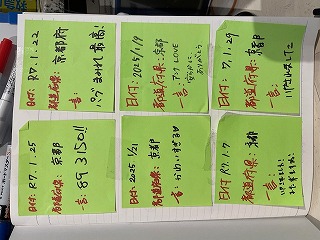 日付: R7.1.22
都道府県: 京都府
一言: パグまみれ最高!
日付: 2025/1/19
都道府県: 京都
一言: アンク LOVE
ありがとう
日付: 7.1.29
都道府県: 京都
一言:
日付: R7.1.25
都道府県: 京都
一言: 893150!!
日付: 2025 1/21
都道府県: 京都
一言: かわいすぎる!!
日付: R7.1.7
都道府県: 京都
一言: